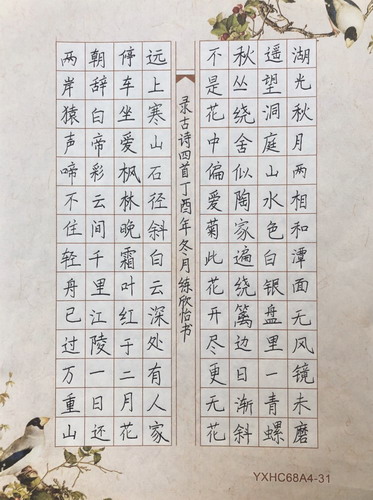 湖光秋月两相和潭面无风镜未磨
遥望洞庭山水色白银盘里一青螺
秋丛绕舍似陶家遍绕篱边日渐斜
不是花中偏爱菊此花开尽更无花
录古诗四首丁酉年冬月练欣怡书
远上寒山石径斜白云深处有人家
停车坐爱枫林晚霜叶红于二月花
朝辞白帝彩云间千里江陵一日还
两岸猿声啼不住轻舟已过万重山
YXHC68A4-31